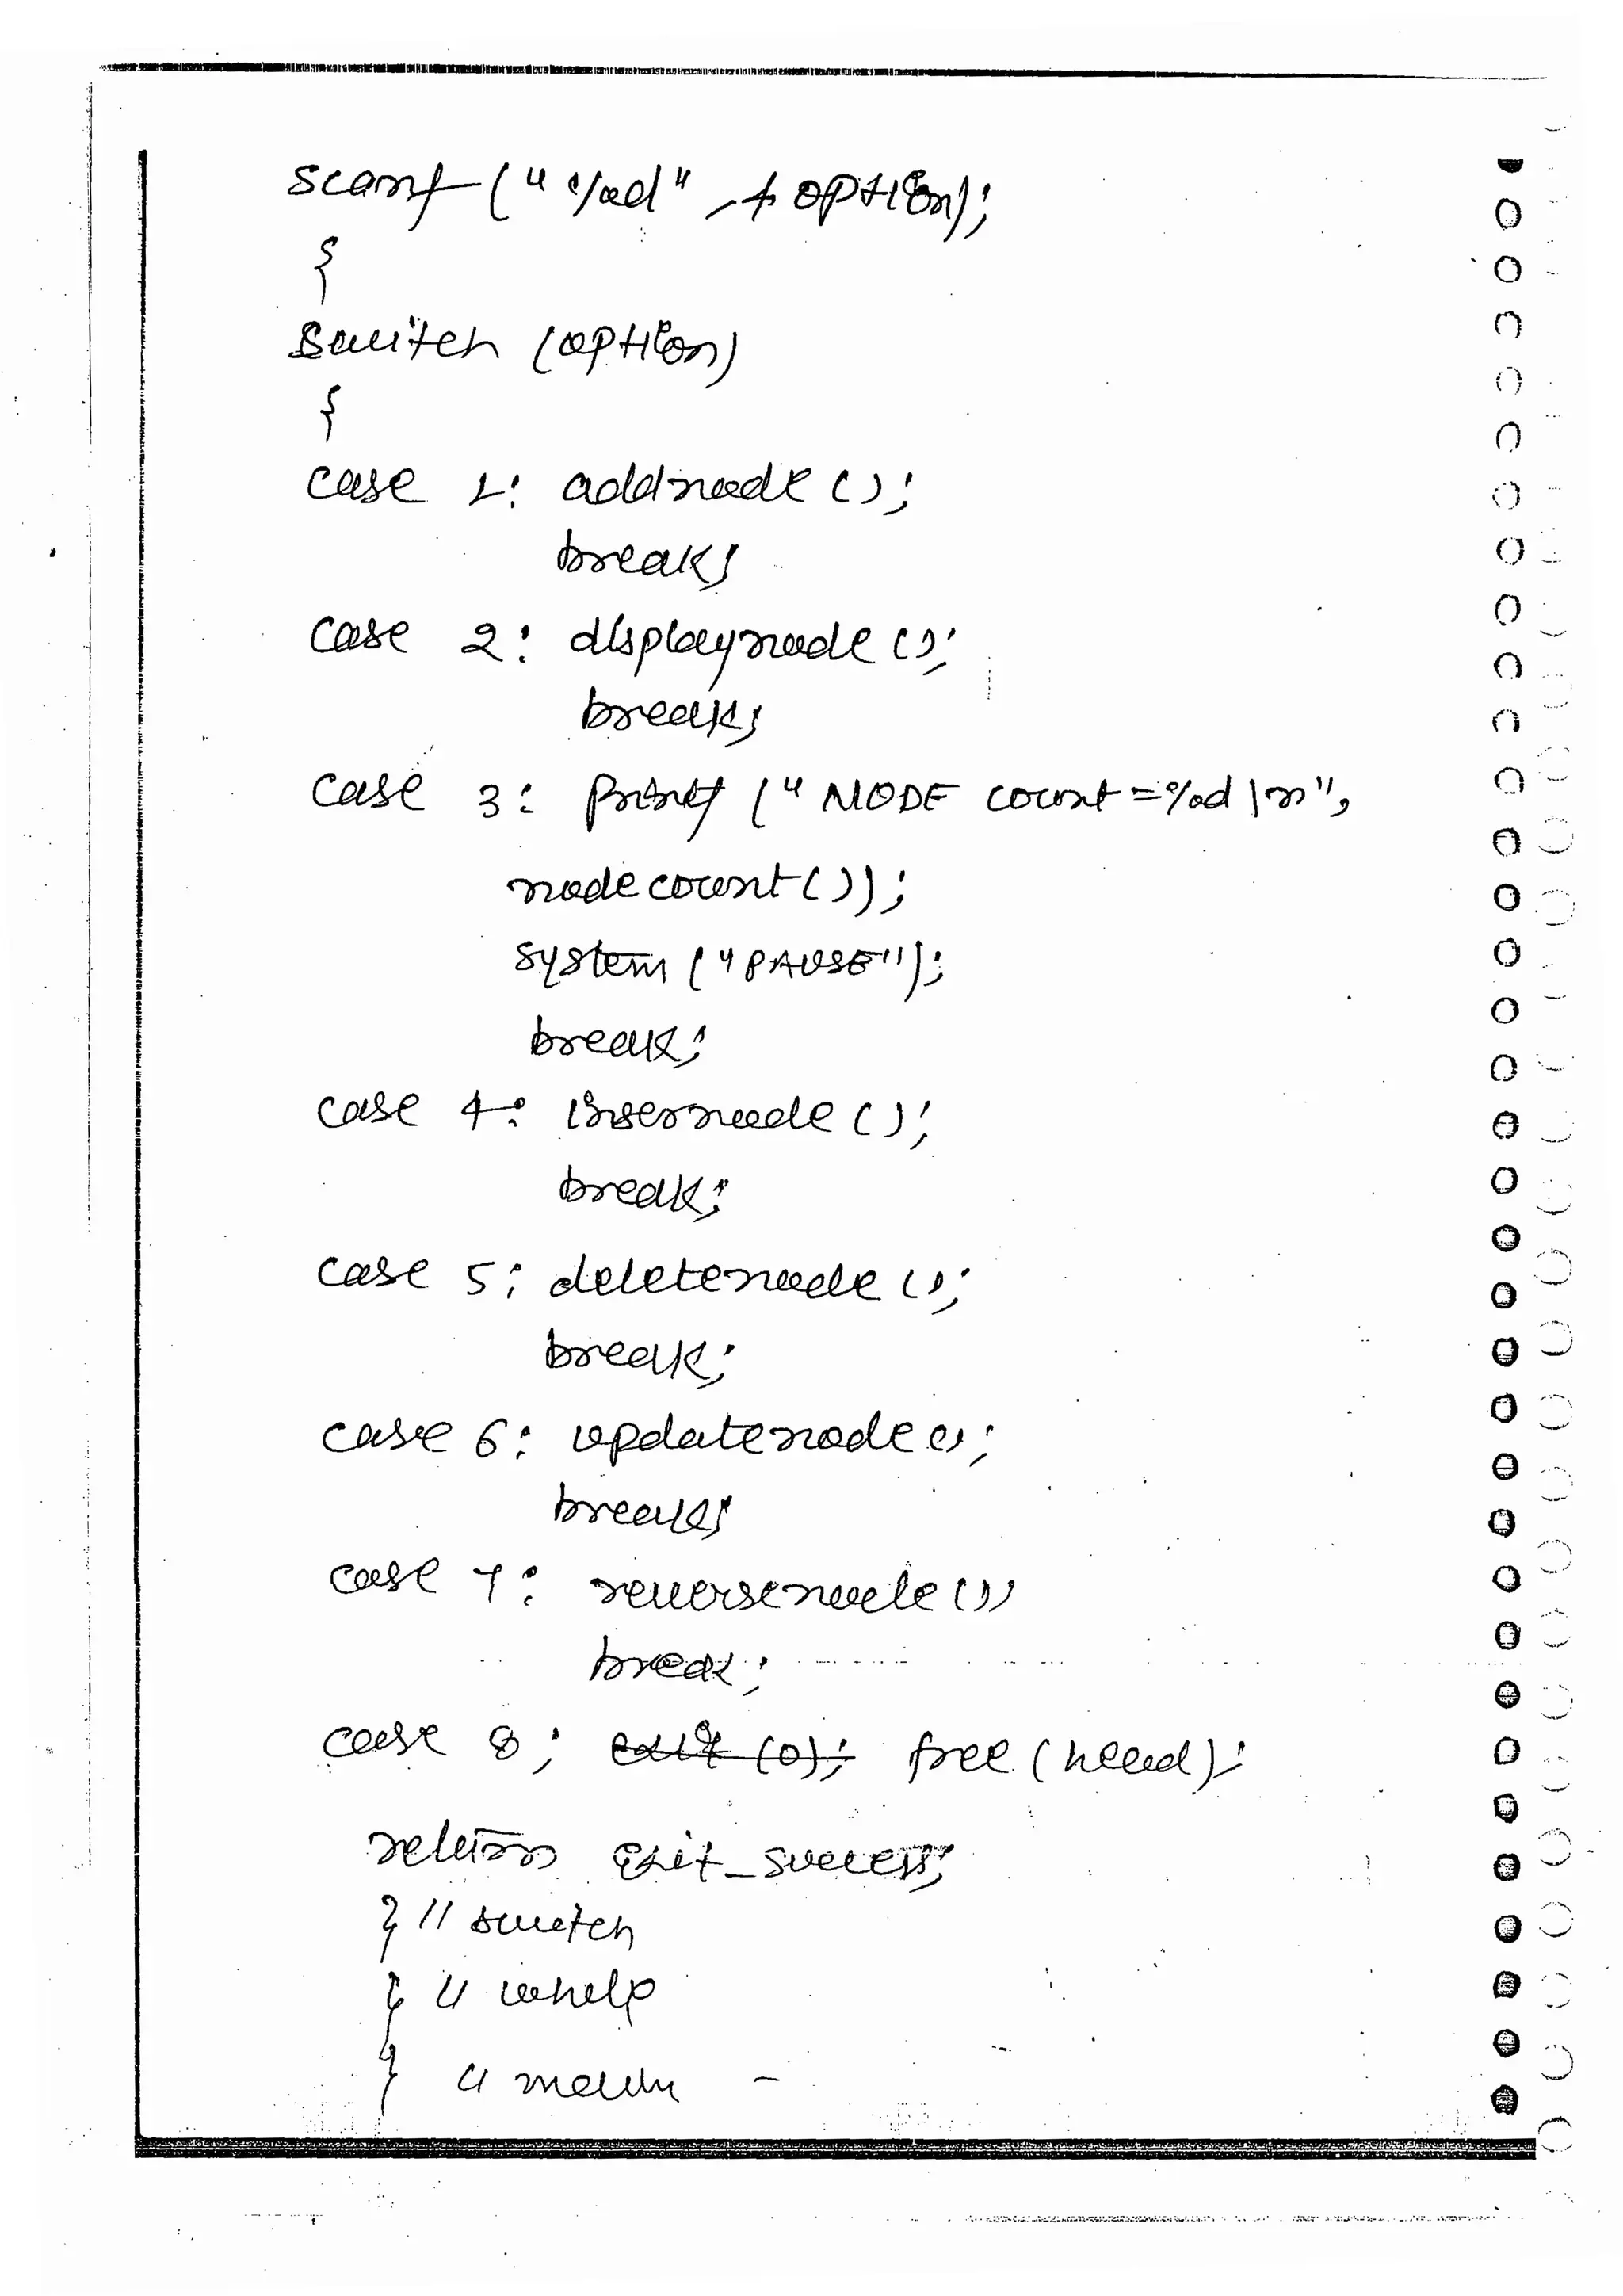 scanf ("%d", & option);
{
Switch (option)
{
case 1: addnode ();
break;
case 2: displaynode ();
break;
case 3: printf ("NODE count = %d \n",
nodecount());
system ("PAUSE");
break;
case 4: insernode ();
break;
case 5: deletenode ();
break;
case 6: updatenode ();
break;
case 7: reversenode ();
break;
case 8; exit (0); free (head);
return Exit_success;
} // switch
} // while
} // main